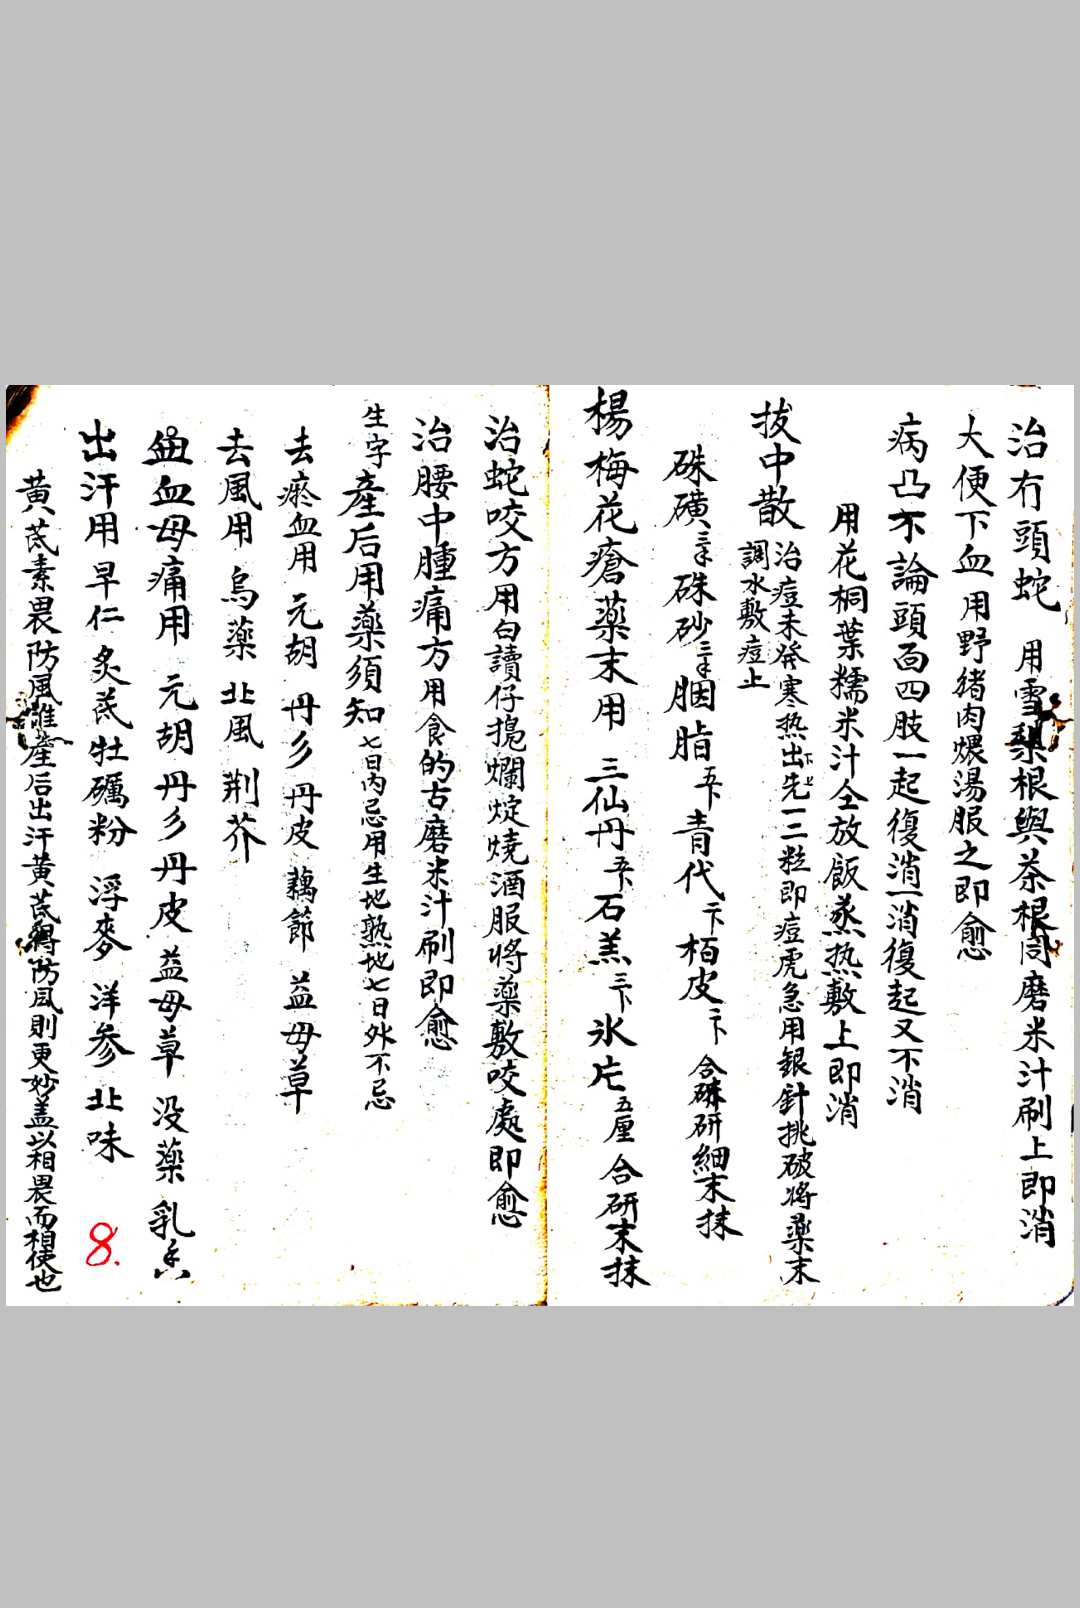 治冇頭蛇 用雪梨根與茶根同磨米汁刷上即消
大便下血用野猪肉煨湯服之即愈
病凸不論頭面四肢一起復消一消復起又不消
用花桐葉糯米汁仝放飯蒸热敷上即消
拔中散 治痘未發寒热出先一二粒即痘虎急用銀針挑破將藥末
調水敷痘上
硃磺 硃砂 胭脂 青代 栢皮 合研細末抹
楊梅花瘡藥末用 三仙丹 石羔 氷片五厘 合研末抹
治蛇咬方用白讀仔搗爛焢燒酒服將藥敷咬處即愈
治腰中腫痛方用食的古磨米汁刷即愈
生字
產后用藥須知 七日內忌用生地熟地七日外不忌
去瘀血用 元胡 丹彡 丹皮 藕節 益母草
去風用 烏藥 北風 荆芥
血母痛用 元胡 丹彡 丹皮 益母草 没藥 乳香
出汗用早仁 炙芪 牡礪粉 浮麥 洋参 北味
黄芪素畏防風 產后出汗黄芪得防風則更妙盖以相畏而相使也
8.